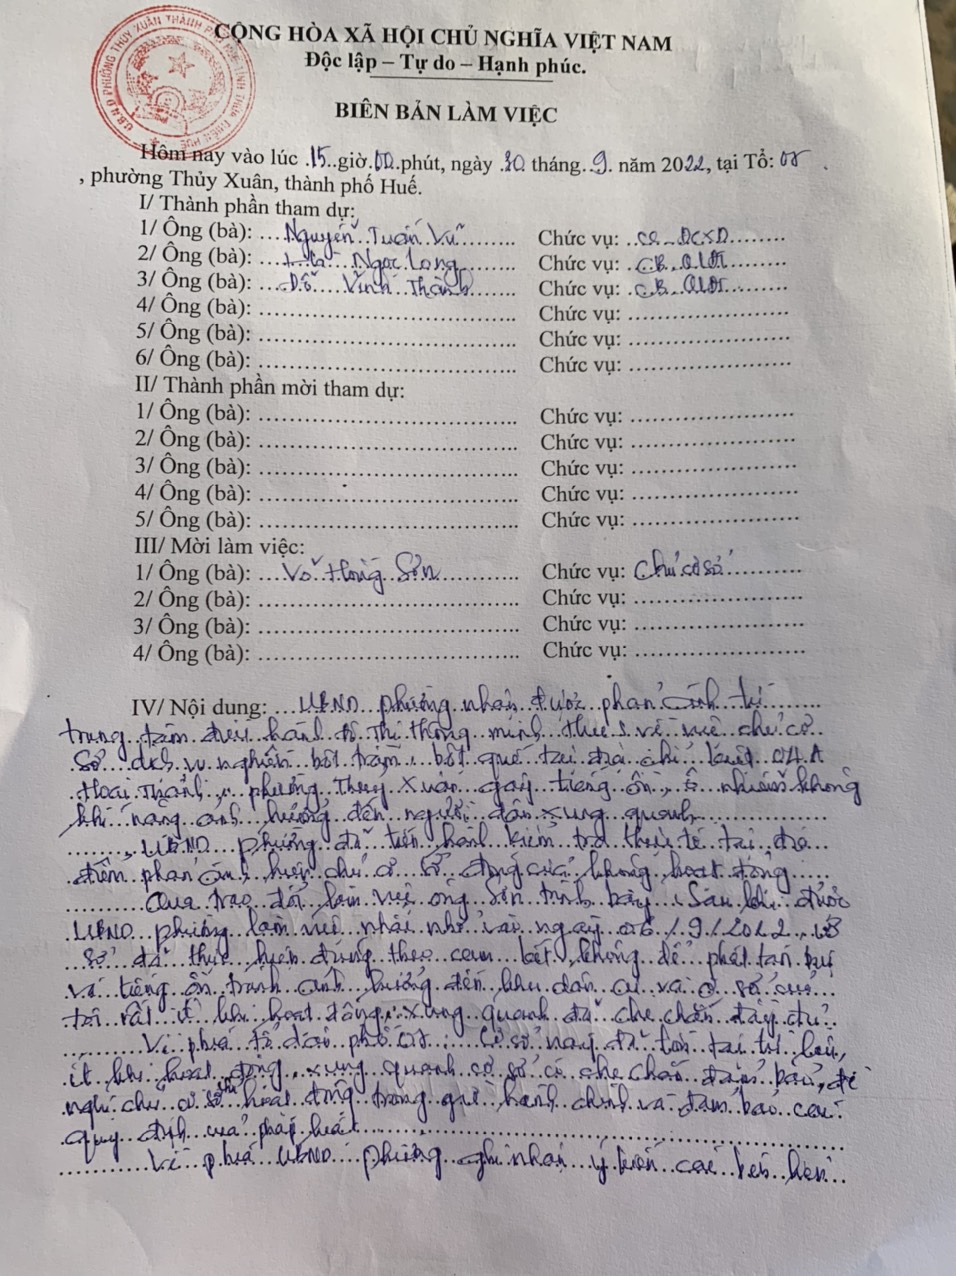 U.B.N.D PHƯỜNG THỦY XUÂN THÀNH PHỐ HUẾ TỈNH THỪA THIÊN HUẾ
CỘNG HÒA XÃ HỘI CHỦ NGHĨA VIỆT NAM
Độc lập – Tự do – Hạnh phúc.
BIÊN BẢN LÀM VIỆC
Hôm nay vào lúc 15 giờ 00 phút, ngày 30 tháng 9 năm 2022, tại Tổ: 05
, phường Thủy Xuân, thành phố Huế.
I/ Thành phần tham dự:
1/ Ông (bà): Nguyễn Tuấn Vũ Chức vụ: CC ĐCXD
2/ Ông (bà): Ngọc Long Chức vụ: CB QLĐT
3/ Ông (bà): Đỗ Vĩnh Thành Chức vụ: CB QLĐT
4/ Ông (bà): Chức vụ:
5/ Ông (bà): Chức vụ:
6/ Ông (bà): Chức vụ:
II/ Thành phần mời tham dự:
1/ Ông (bà): Chức vụ:
2/ Ông (bà): Chức vụ:
3/ Ông (bà): Chức vụ:
4/ Ông (bà): Chức vụ:
5/ Ông (bà): Chức vụ:
III/ Mời làm việc:
1/ Ông (bà): Võ Hồng Sơn Chức vụ: Chủ cơ sở
2/ Ông (bà): Chức vụ:
3/ Ông (bà): Chức vụ:
4/ Ông (bà): Chức vụ:
IV/ Nội dung: UBND phường nhận được phản ánh từ
trung tâm điều hành đô thị thông minh về việc chủ cơ
sở dịch vụ nghiền bột trầm, bột quế tại địa chỉ kiệt
Hoài Thanh, phường Thủy Xuân gây tiếng ồn, ô nhiễm không
khí nặng ảnh hưởng đến người dân xung quanh
UBND phường đã tiến hành kiểm tra thực tế tại địa
điểm phản ánh, hiện chủ cơ sở đóng cửa không hoạt động
Qua trao đổi làm việc ông Sơn trình bày: Sau khi được
UBND phường làm việc nhắc nhở vào ngày 06/9/2022, cơ
sở đã thực hiện đúng theo cam kết, không để phát tán bụi
và tiếng ồn tránh ảnh hưởng đến khu dân cư và cơ sở của
tôi rất ít khi hoạt động, xung quanh đã che chắn đầy đủ
Về phía tổ dân phố 05: Cơ sở này đã tồn tại từ lâu,
ít khi hoạt động, xung quanh cơ sở có che chắn đảm bảo, đề
nghị chủ cơ sở hoạt động trong giờ hành chính và đảm bảo các
quy định của pháp luật
Về phía UBND phường ghi nhận ý kiến các bên